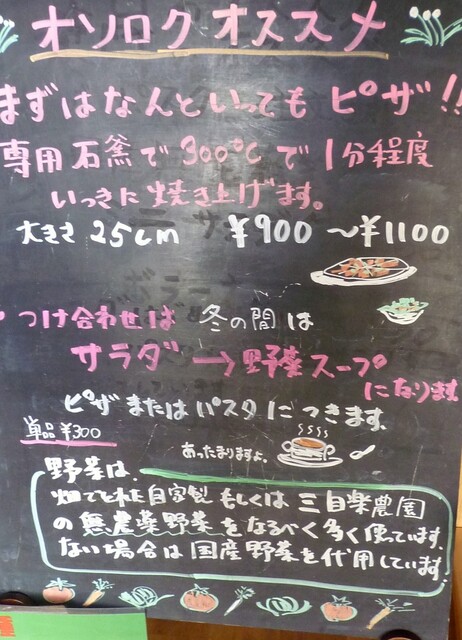 オソロク オススメ
まずはなんといっても ピザ!!
専用石釜で300℃で1分程度
いっきに焼き上げます。
大きさ 25cm ¥900 〜¥1100
つけ合わせは 冬の間は
サラダ → 野菜スープ
になります
ピザまたはパスタにつきます。
単品¥300
あったまりますよ。
野菜は、
畑でとれた自家製 もしくは 三自楽農園
の無農薬野菜をなるべく多く使っています。
ない場合は国産野菜を代用しています。